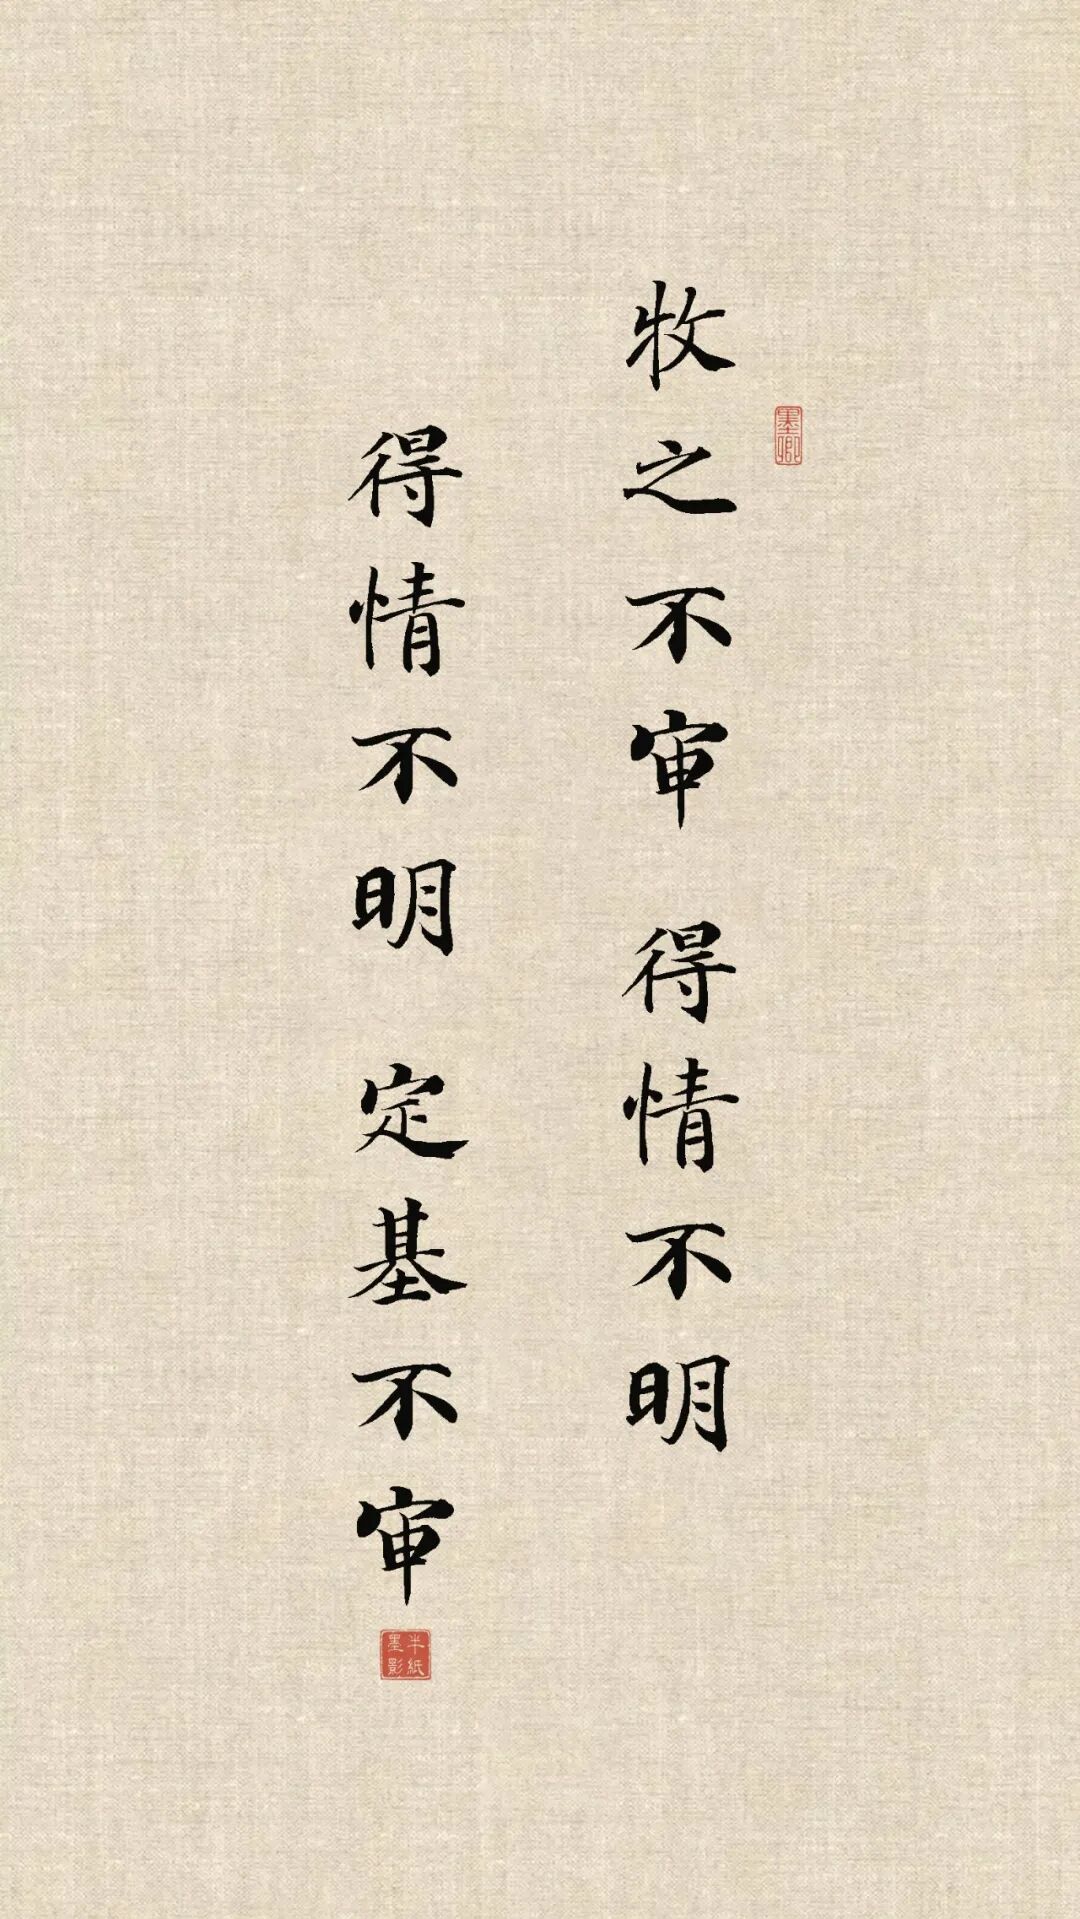 牧之不审 得情不明
得情不明 定基不审
墨卿
半纸
墨影